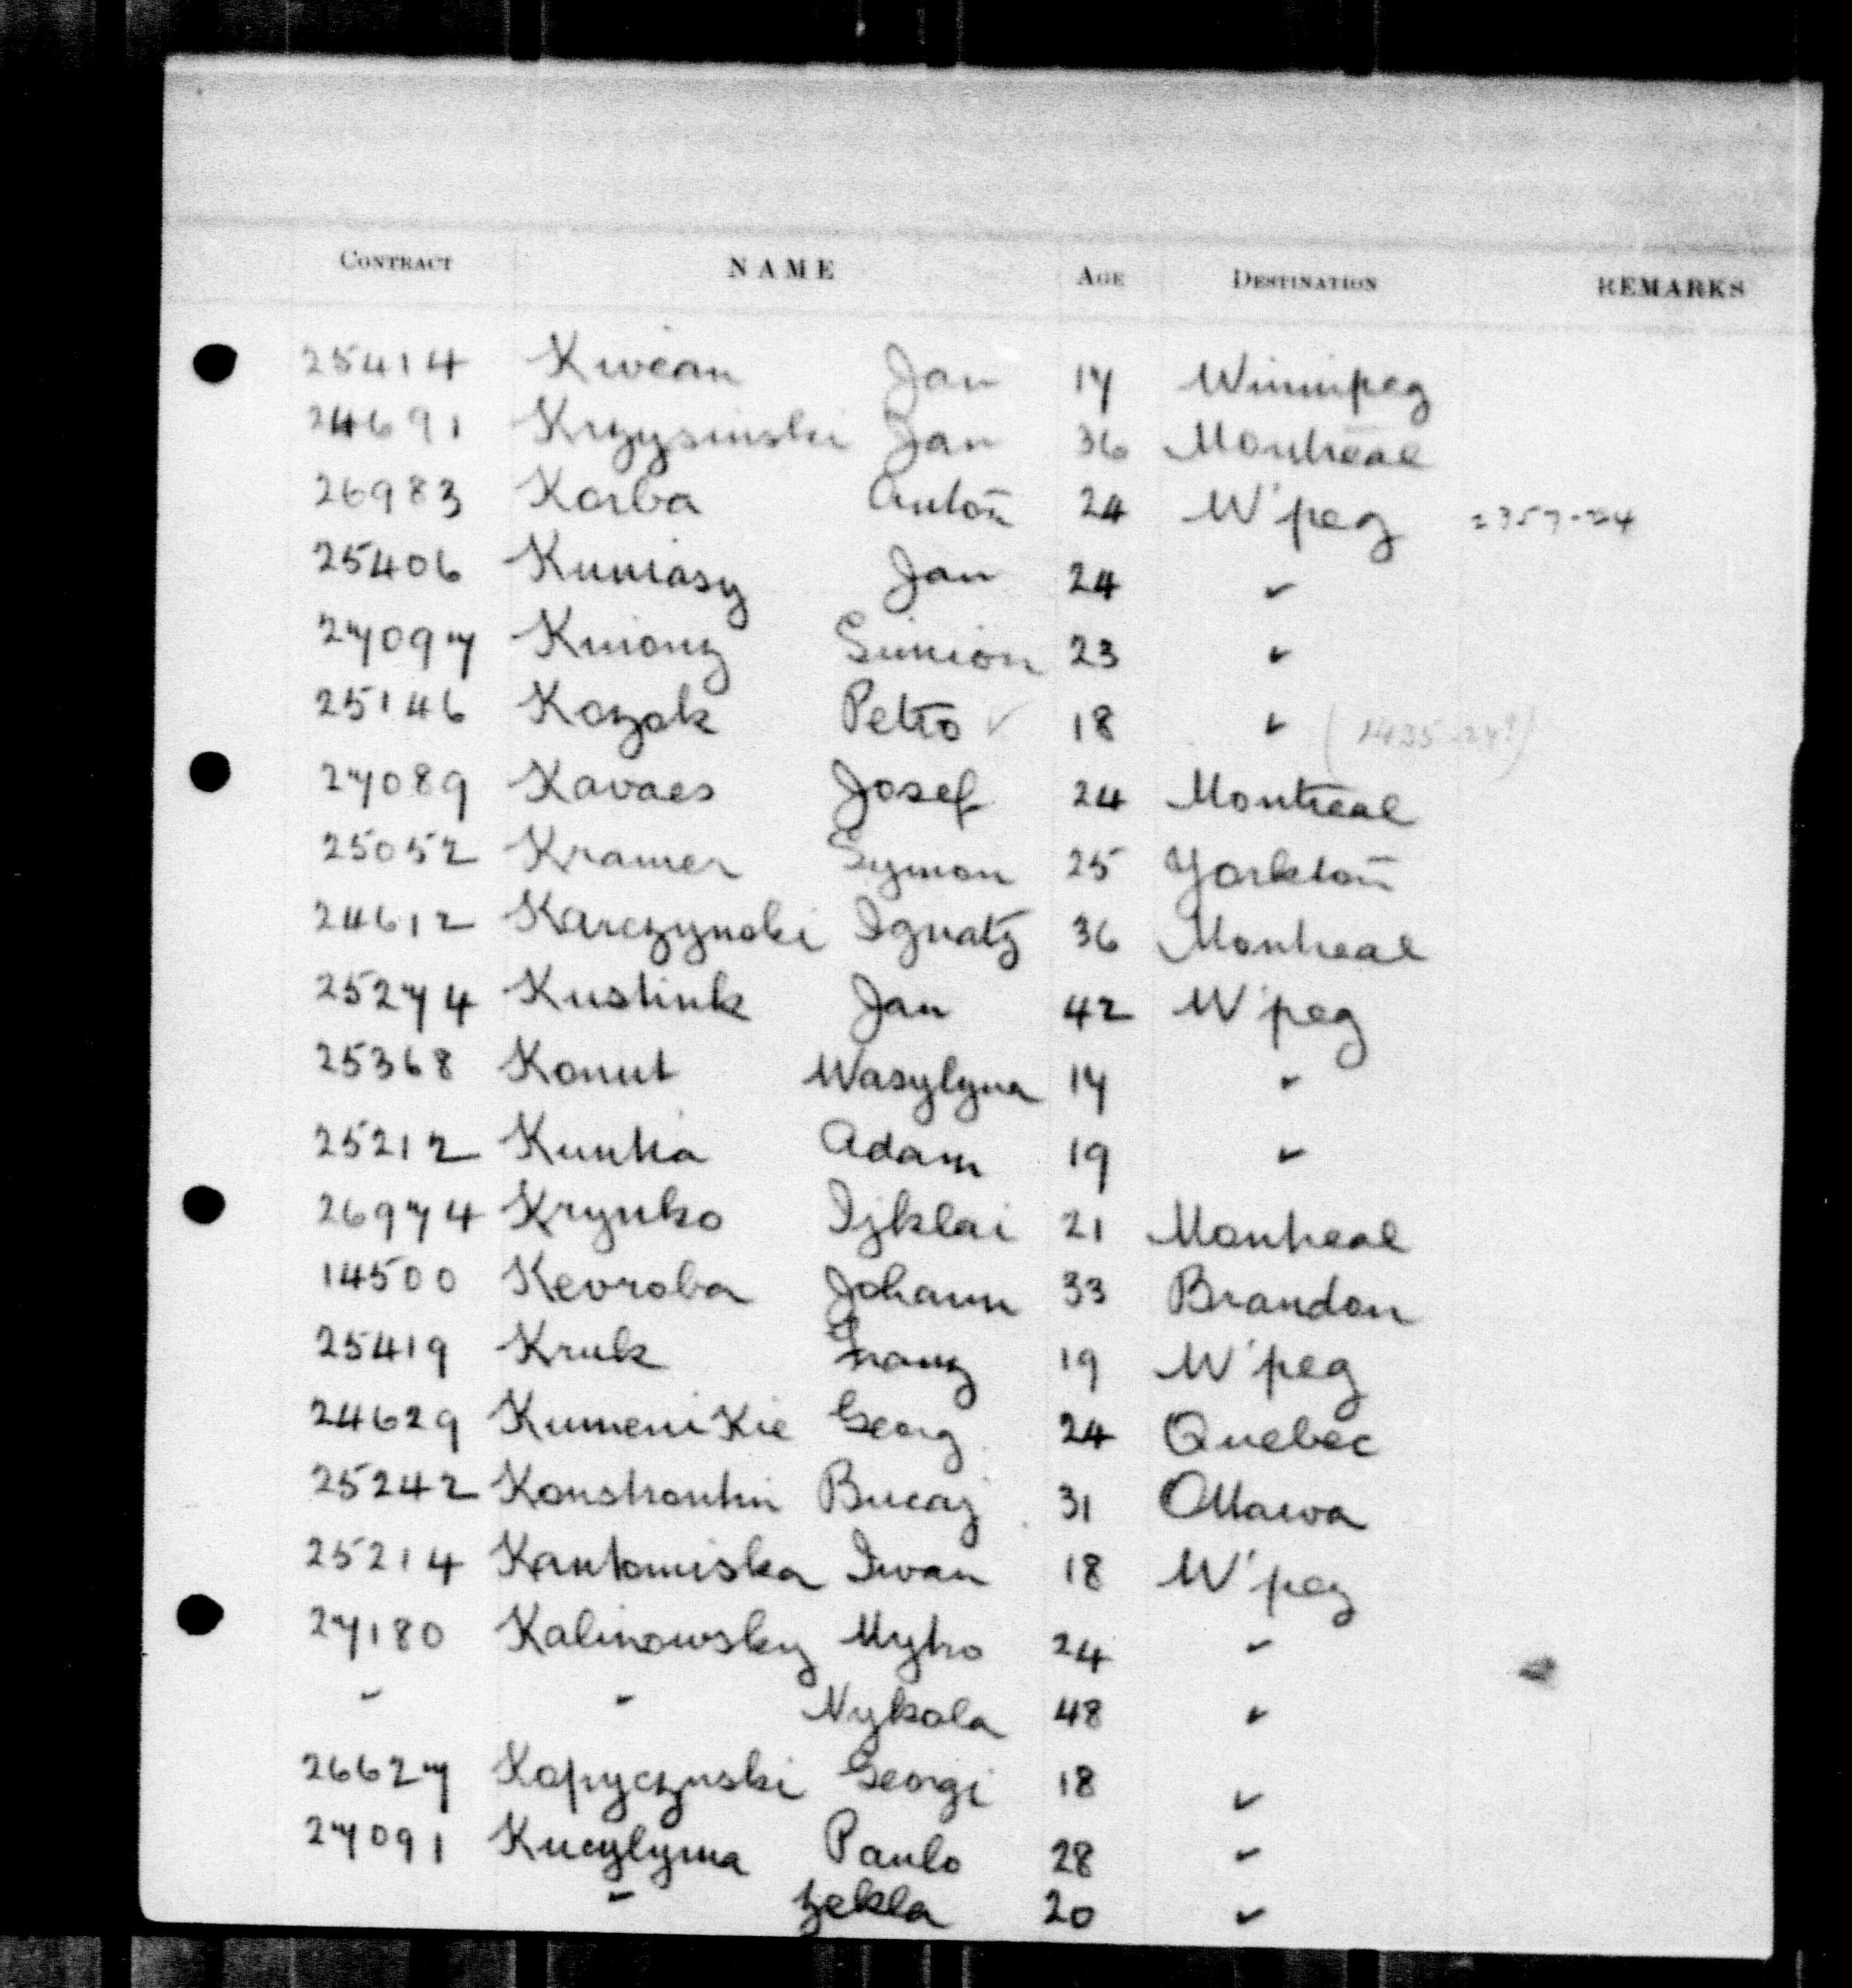 CONTRACT NAME AGE DESTINATION REMARKS
25414 Kwean Jan 17 Winnipeg
24691 Krzysinski Jan 36 Montreal
26983 Korba Anton 24 W'peg
25406 Kumiasy Jan 24 "
27097 Kmonz Simion 23 "
25146 Kozak Petro ✓ 18 "
27089 Kavaes Josef 24 Montreal
25052 Kramer Symon 25 Yorkton
24612 Karczynski Ignatz 36 Montreal
25274 Kustink Jan 42 W'peg
25368 Konut Wasylyna 17 "
25212 Adam 19 "
26974 Krynko 21 Montreal
14500 Kevroba Johann 33 Brandon
25419 Kruk Franz 19 W'peg
24629 Kumenikie Georg 24 Quebec
25242 Konstrontin Bucaj 31 Ottawa
25214 Kantomiska Iwan 18 W'peg
27180 Kalinowsky Mytro 24 "
" " Nykola 48 "
26627 Kopycznski Georgi 18 "
27091 Kucylyma Paulo 28 "
" Zekla 20 "